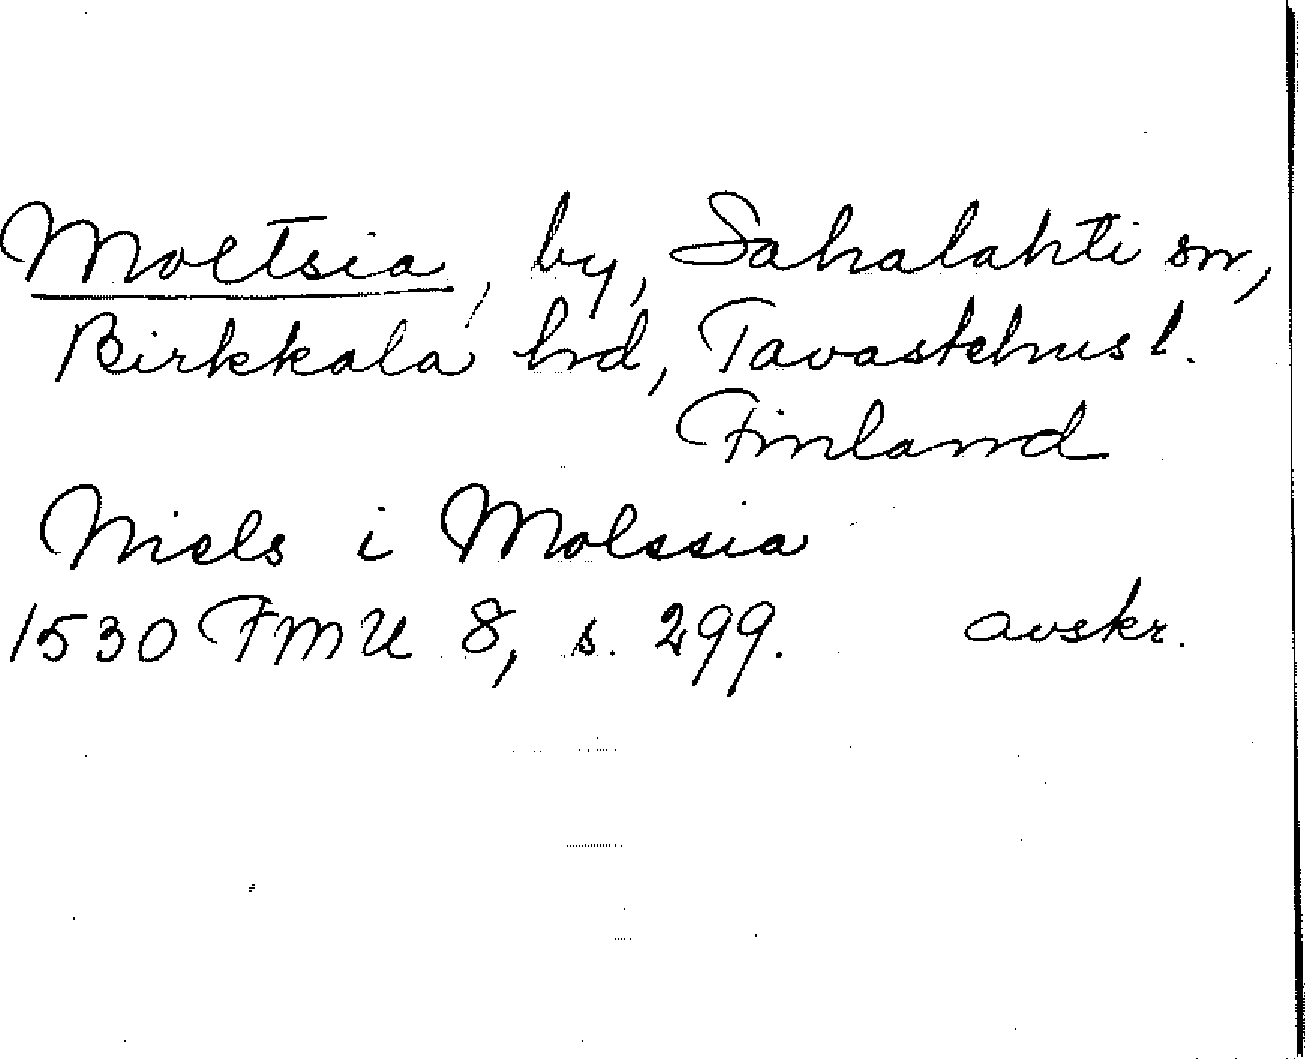 Moltsia, by, Sahalahti sn,
Birkkala hd, Tavastehus l.
Finland
Niels i Molssia
1530 FMU 8, s. 299. avskr.